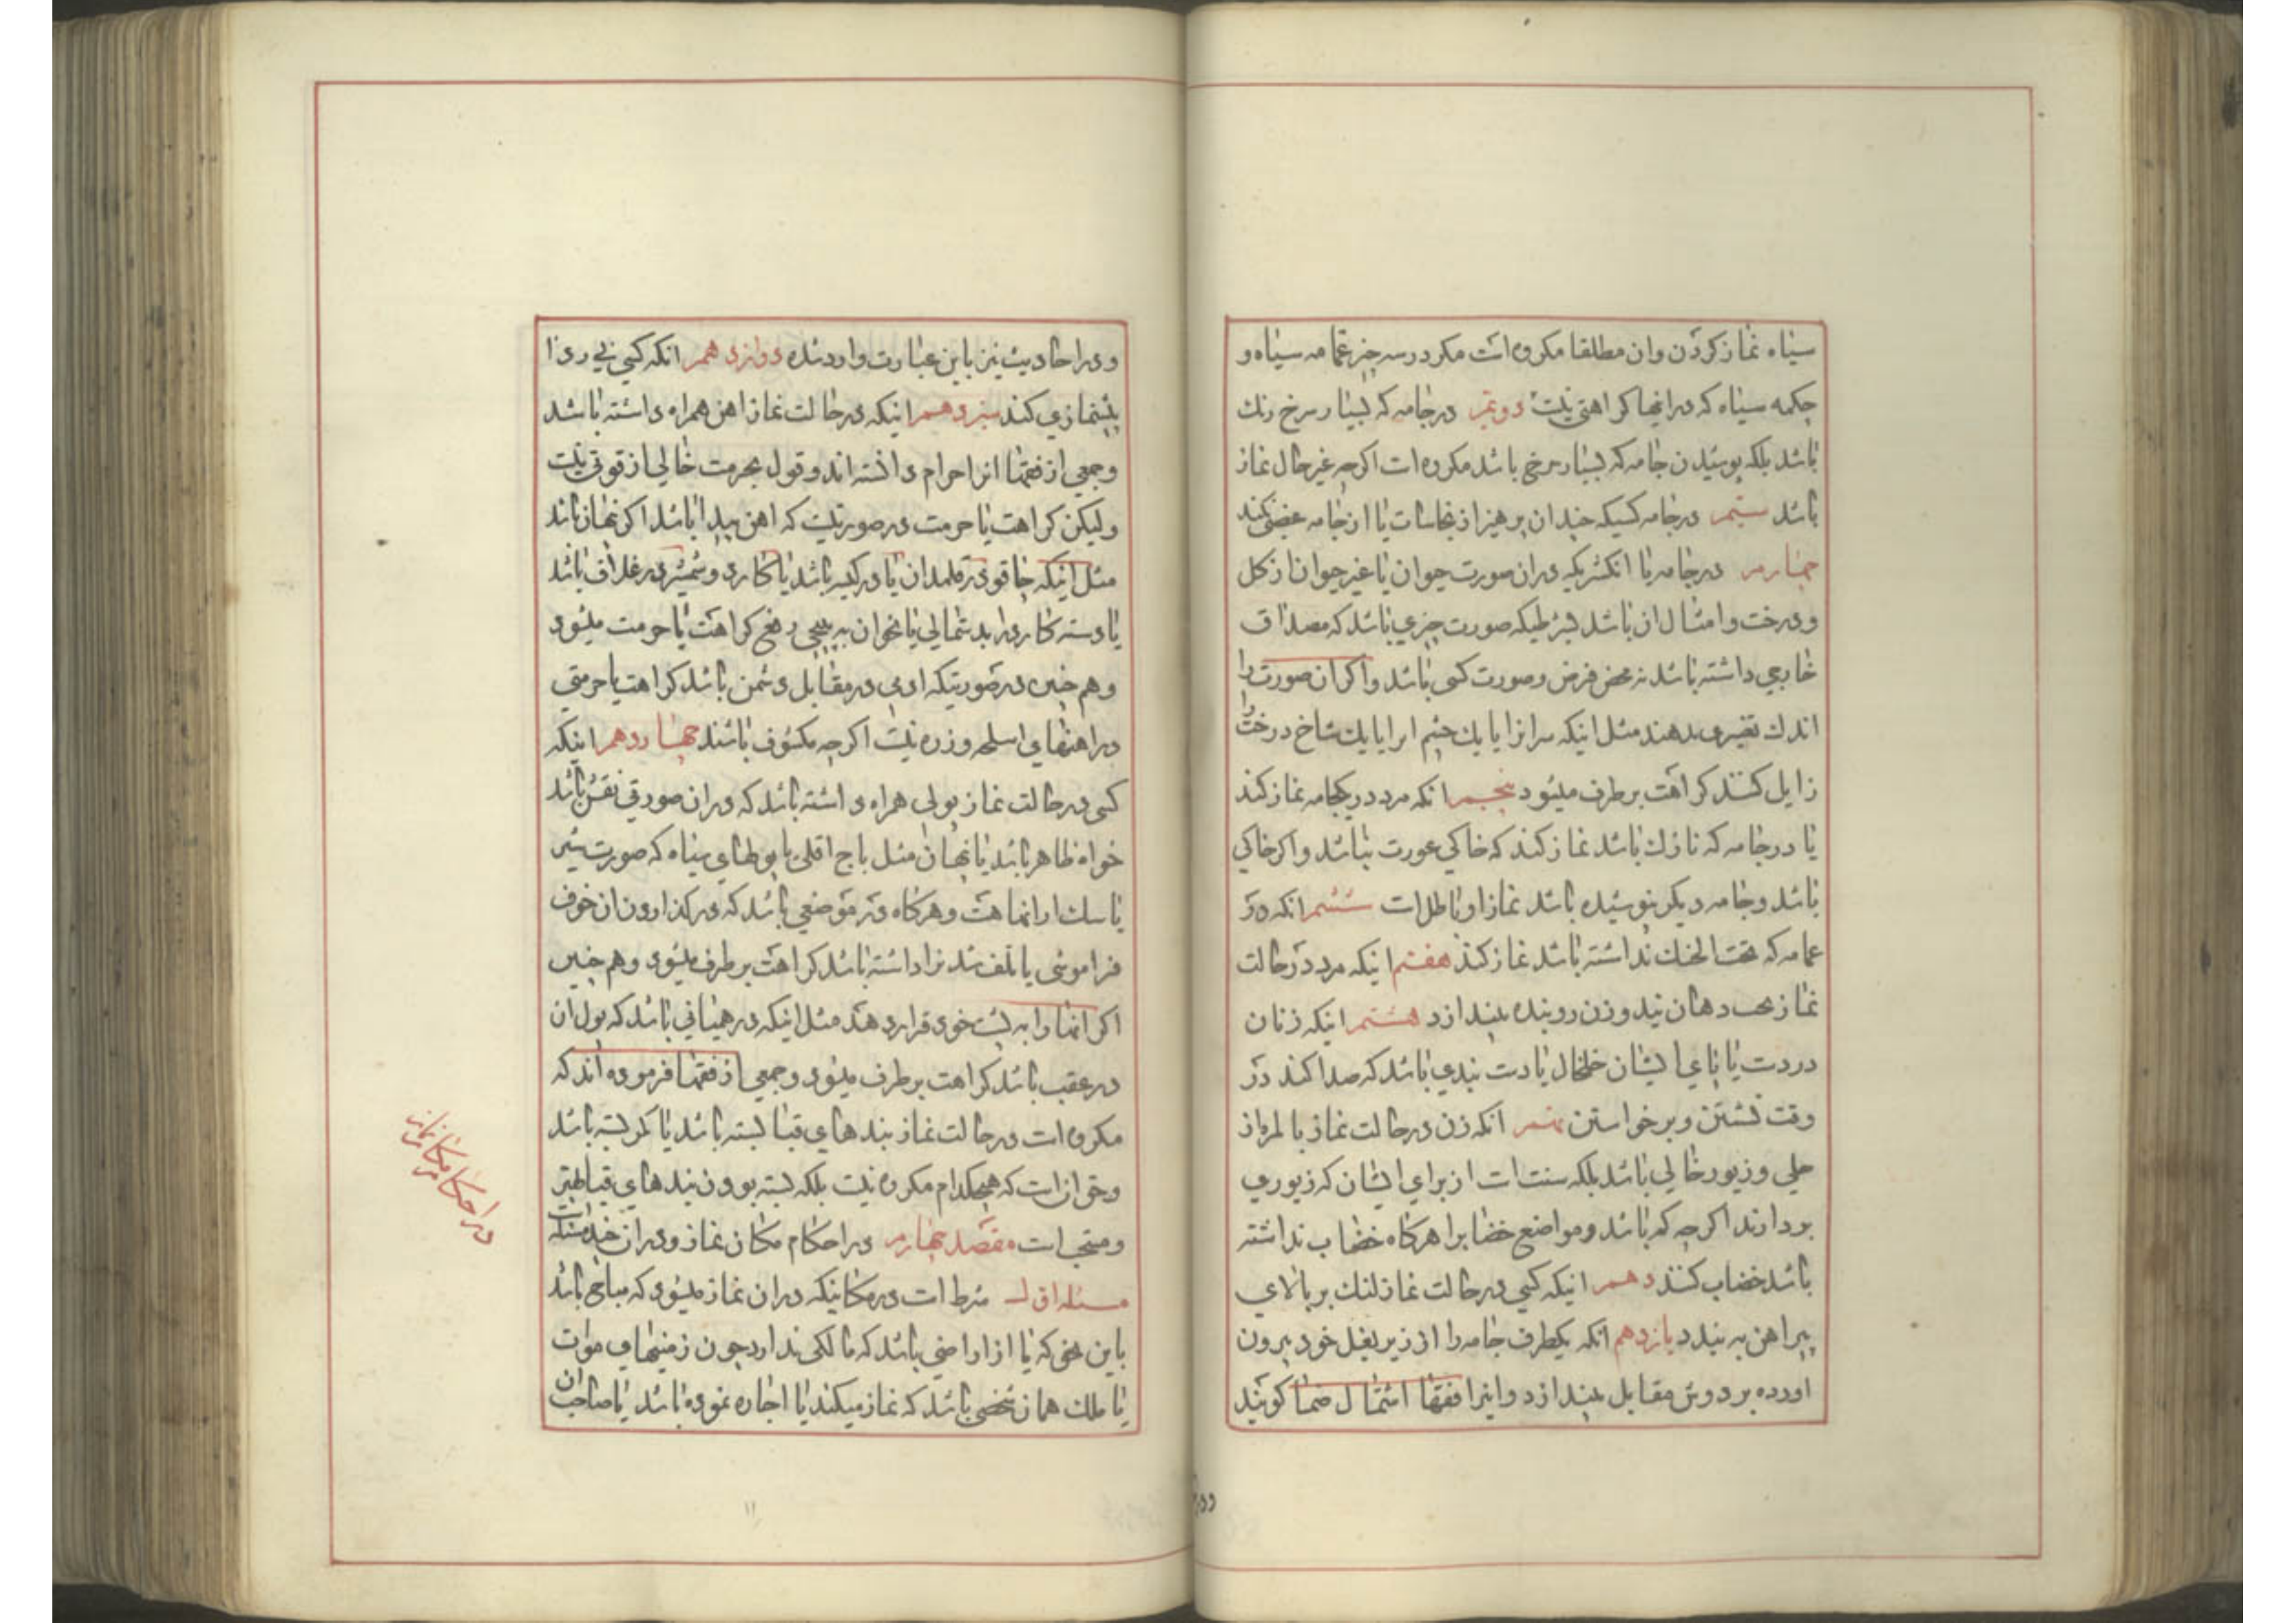 سیاه نماز کردن وان مطلقا مکروه است مکر در سه چیز عمامه سیاه و
چکمه سیاه که در انها کراهتی نیست دویم در جامه که بسیار سرخ رنك
باشد بلکه پوشیدن جامه که بسیار سرخ باشد مکروه است اکرچه غیر حال نماز
باشد سیّم در جامه کسیکه چندان پرهیز از نجاسات یا از جامه غصبی نکند
چهارم در جامه یا انکشتریکه در ان صورت حیوان یا غیر حیوان از کل
و درخت و امثال ان باشد بشرطیکه صورت چیزی باشد که مصداق
خارجی داشته باشد نه محض فرض وصورت کسی باشد واکر ان صورت را
اندك تغییری بدهند مثل اینکه سر انرا یا یك چشم انرا یا یك شاخ درخت را
زایل کنند کراهت برطرف میشود پنجم انکه مرد در یکجامه نماز کند
یا در جامه که نازك باشد نماز کند که حاکی عورت نباشد واکر حاکی
باشد وجامه دیکر نپوشیده باشد نماز او باطل است ششم انکه در
عمامه که تحت الحنك نداشته باشد نماز کند هفتم اینکه مرد در حالت
نماز دهان بند وزن روبنده بیندازد هشتم اینکه زنان
در دست یا پای ایشان خلخال یا دست بندی باشد که صدا کند در
وقت نشستن وبرخواستن نهم انکه زن در حالت نماز بالمره از
حلی وزیور خالی باشد بلکه سنت است از برای ایشان که زیوری
بردارند اکرچه کم باشد ومواضع خضابرا هرکاه خضاب نداشته
باشد خضاب کنند دهم اینکه کسی در حالت نماز لنك بر بالای
پیراهن به بندد یازدهم انکه یکطرف جامه را از زیر بغل خود بیرون
اورده بر دوش مقابل بیندازد واینرا فقها اشتمال صمّا کویند
ودر
ودر احادیث نیز باین عبارت وارد شده دوازدهم انکه کسی بی ردا
پیشنمازی کند سیزدهم اینکه در حالت نماز اهن همراه داشته باشد
وجمعی از فقها انرا حرام دانسته اند وقول بحرمت خالی از قوتی نیست
ولیکن کراهت یا حرمت در صورتیست که اهن پیدا باشد اکر پنهان باشد
مثل اینکه چاقو در قلمدان یا در کیسه باشد یا کارد وشمشیر در غلاف باشد
یا دسته کارد را بدستمالی یا نحو ان به پیچی رفع کراهت یا حرمت میشود
وهم چنین در صورتیکه ادمی در مقابل دشمن باشد کراهت یا حرمتی
در اهنهای اسلحه وزره نیست اکرچه مکشوف باشند چهاردهم اینکه
کسی در حالت نماز پولی همراه داشته باشد که در ان صورتی نقش باشد
خواه ظاهر باشد یا پنهان مثل باج اقلی یا پوطهای سیاه که صورت شیر
یا سك در انها هست وهرکاه در موضعی باشد که در کذاردن ان خوف
فراموشی یا تلف شدنرا داشته باشد کراهت برطرف میشود وهم چنین
اکر انها را به پشت خود قرار دهد مثل اینکه در همیانی باشد که پول ان
در عقب باشد کراهت برطرف میشود وجمعی از فقها فرموده اند که
مکروه است در حالت نماز بندهای قبا بسته باشد یا کمر بسته باشد
وحق انست که هیچکدام مکروه نیست بلکه بسته بودن بندهای قبا بهتر
ومستحب است مقصد چهارم در احکام مکان نماز ودر ان چند مسئله است
مسئله اوّل شرط است در مکانیکه در ان نماز میشود که مباح باشد
باین معنی که یا از اراضی باشد که مالکی ندارد چون زمینهای موات
یا ملك همان شخصی باشد که نماز میکند یا اجاره نموده باشد یا صاحب ان
در احکام مکان نماز